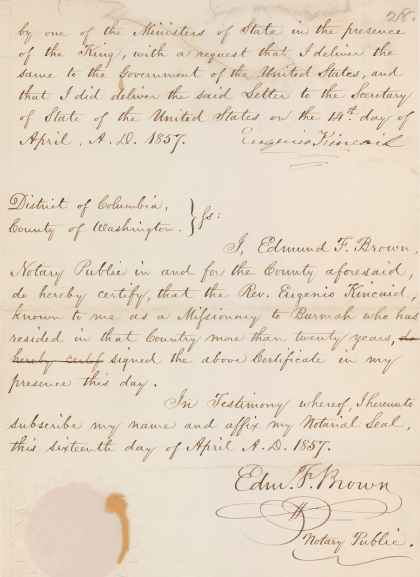 28.
by one of the Ministers of State in the presence
of the King, with a request that I deliver the
same to the Government of the United States, and
that I did deliver the said Letter to the Secretary
of State of the United States on the 14th day of
April, A. D. 1857. Eugenio Kincaid
District of Columbia,
County of Washington. } ss:
I, Edmund F. Brown,
Notary Public in and for the County aforesaid,
do hereby certify, that the Rev. Eugenio Kincaid,
known to me as a Missionary to Burmah who has
resided in that Country more than twenty years, do
hereby certif signed the above Certificate in my
presence this day.
In Testimony whereof, I hereunto
subscribe my name and affix my Notarial Seal,
this sixteenth day of April A. D. 1857.
Edm. F. Brown
Notary Public.